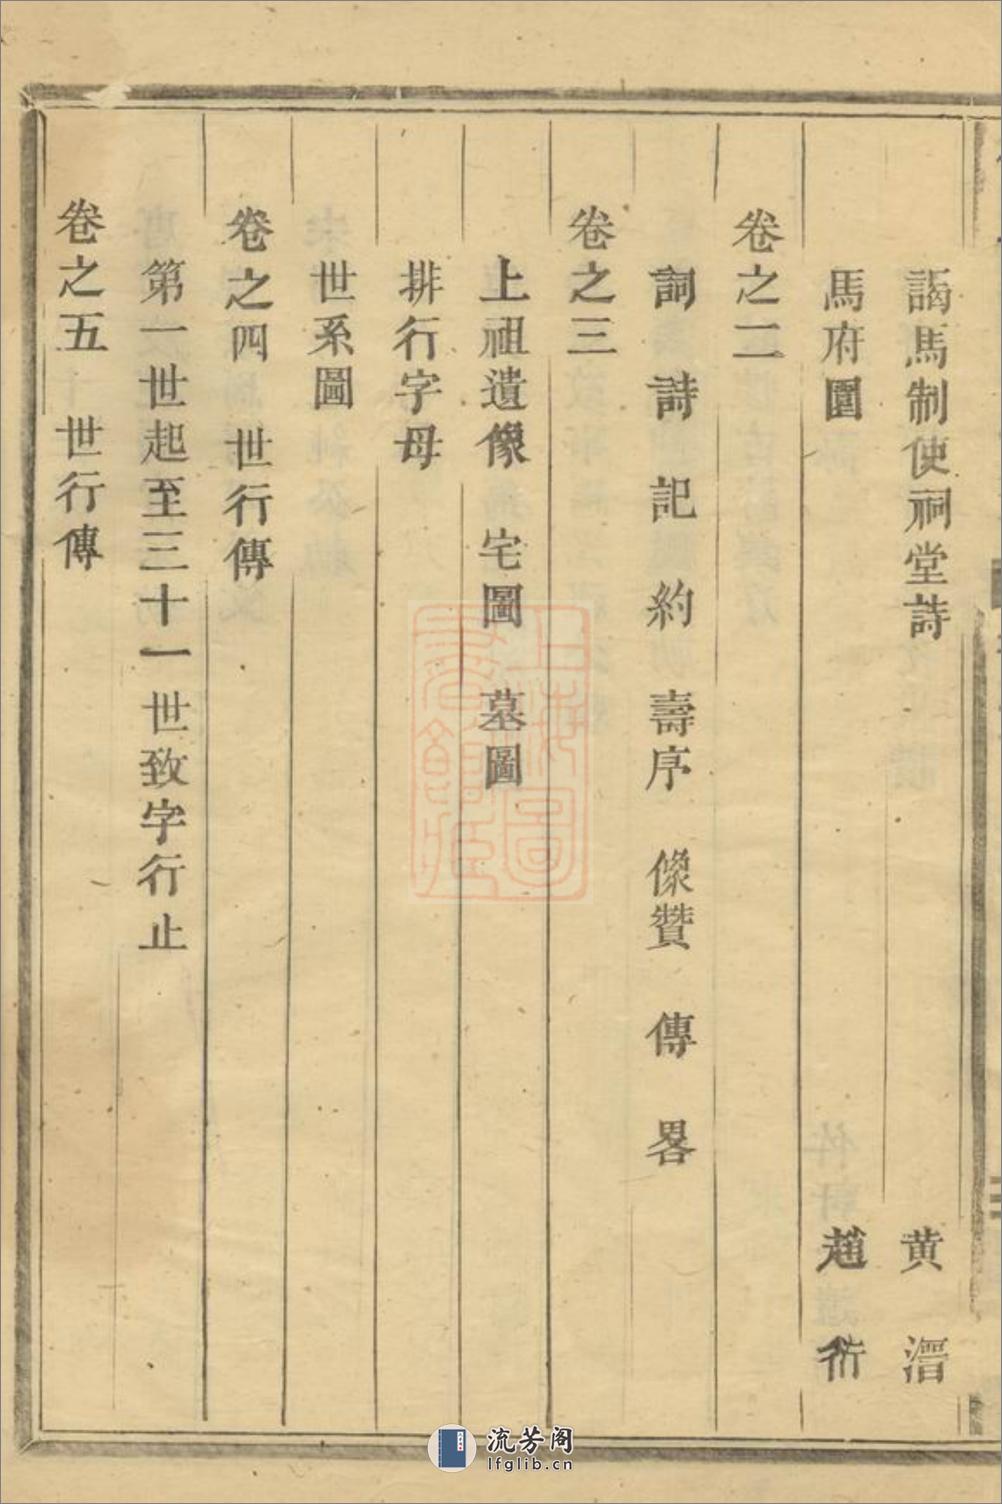 謁馬制使祠堂詩 黄溍
馬府圖 趙衍
卷之二
詞 詩 記 約 壽序 像贊 傳 畧
卷之三
上祖遺像 宅圖 墓圖
排行字母
世系圖
卷之四 世行傳
第一世起至三十一世致字行止
卷之五 世行傳
上海圖書館藏
流芳阁
lfglib.cn